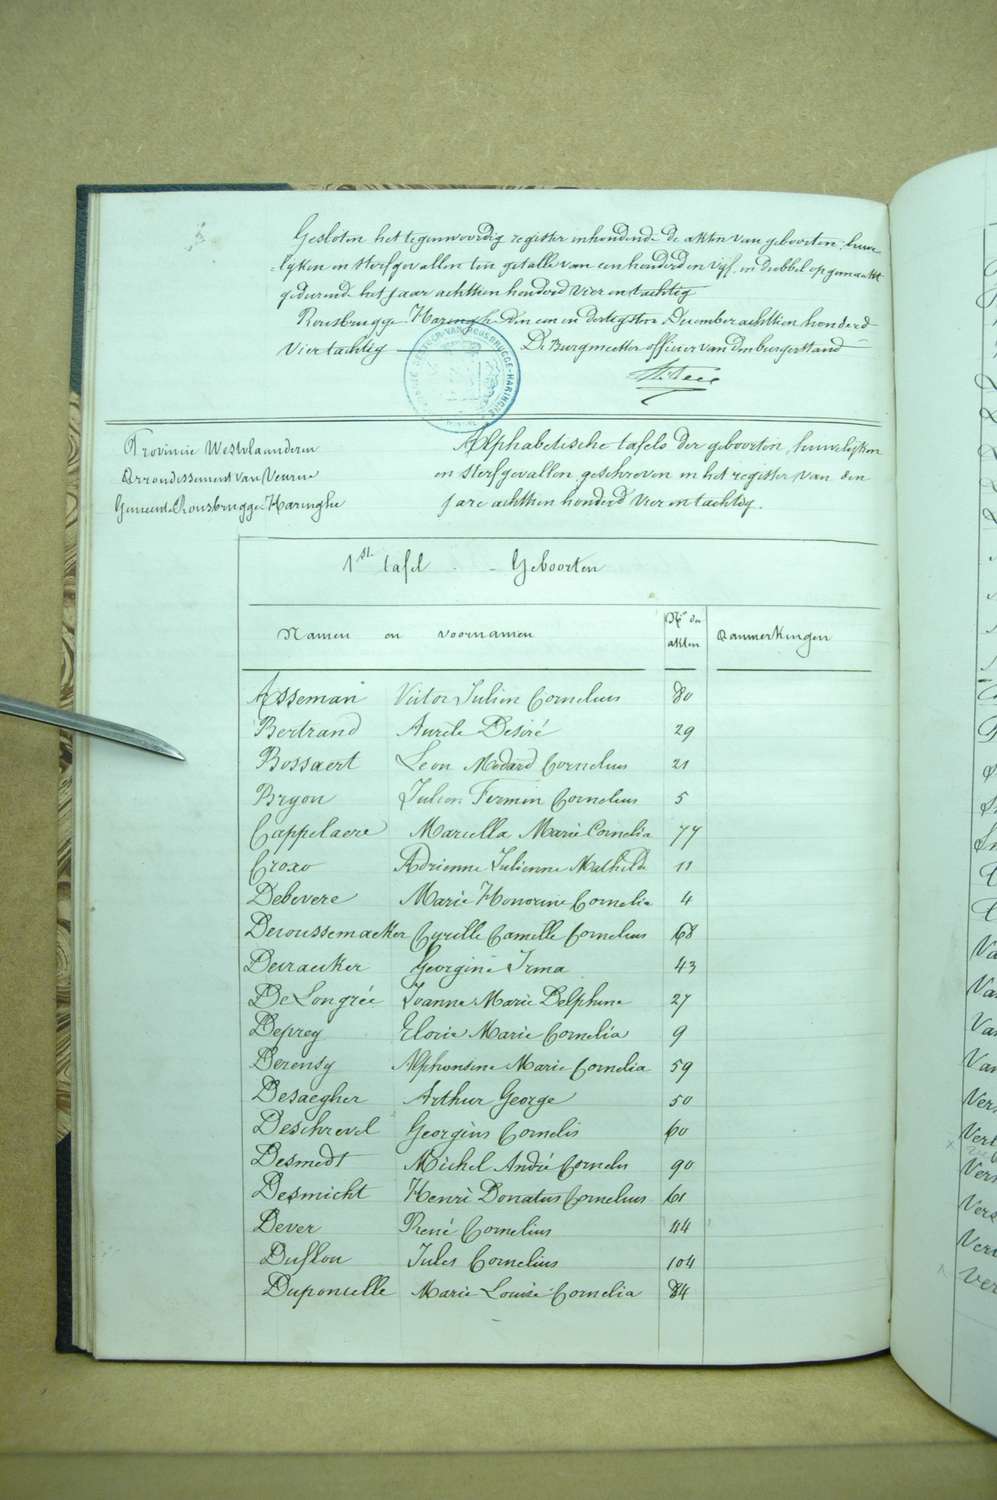 Gesloten het tegenwoordig register inhoudende de akten van geboorten, huwe-
-lijken en sterfgevallen ten getalle van een honderd en vijf, in dubbel opgemaakt
gedurende het jaar achttien honderd vier en tachtig
Rousbrugge-Haringhe den een en dertigsten December achttien honderd
Vier tachtig
De Burgmeester officier van den burgerstand
Provincie Westvlaanderen
Arrondissement van Veurne
Gemeente Rousbrugge-Haringhe
Alphabetische tafels der geboorten, huwelijken
en sterfgevallen, geschreven in het register van den
jare achttien honderd vier en tachtig.
1ste tafel - Geboorten
Namen en voornamen
Nrs der akten
Aanmerkingen
Asseman Victor Julien Cornelius 80
Bertrand Aurele Desiré 29
Bossaert Leon Medard Cornelius 21
Bryon Julien Firmin Cornelius 5
Cappelaere Mariella Marie Cornelia 77
Croxo Adrienne Julienne Mathilde 11
Debevere Marie Honorine Cornelia 4
Decoussemaeker Cyrille Camille Cornelius 68
Decraeker Georgine Irma 43
De Longrée Joanna Marie Delphine 27
Deprey Elodie Marie Cornelia 9
Derensy Alphonsine Marie Cornelia 59
Desaegher Arthur George 50
Deschrevel Georgius Cornelis 60
Desmedt Michel André Cornelis 90
Desmicht Henri Donatus Cornelius 61
Dever René Cornelius 44
Duflou Jules Cornelius 104
Duponselle Marie Louise Cornelia 84
Va
Van
Van
Van
Vers
Vert
Vers
Vers
Vers
Ver